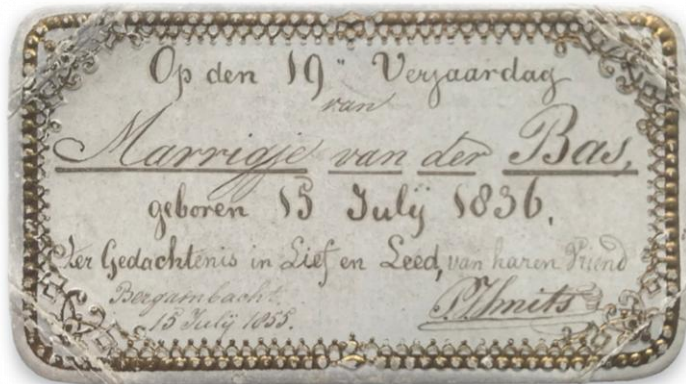 Op den 19" Verjaardag
van
Marrigje van der Bas,
geboren 15 Julÿ 1836.
Ter Gedachtenis in Lief en Leed, van haren Vriend
Bergambacht
15 Julÿ 1855.
Smits